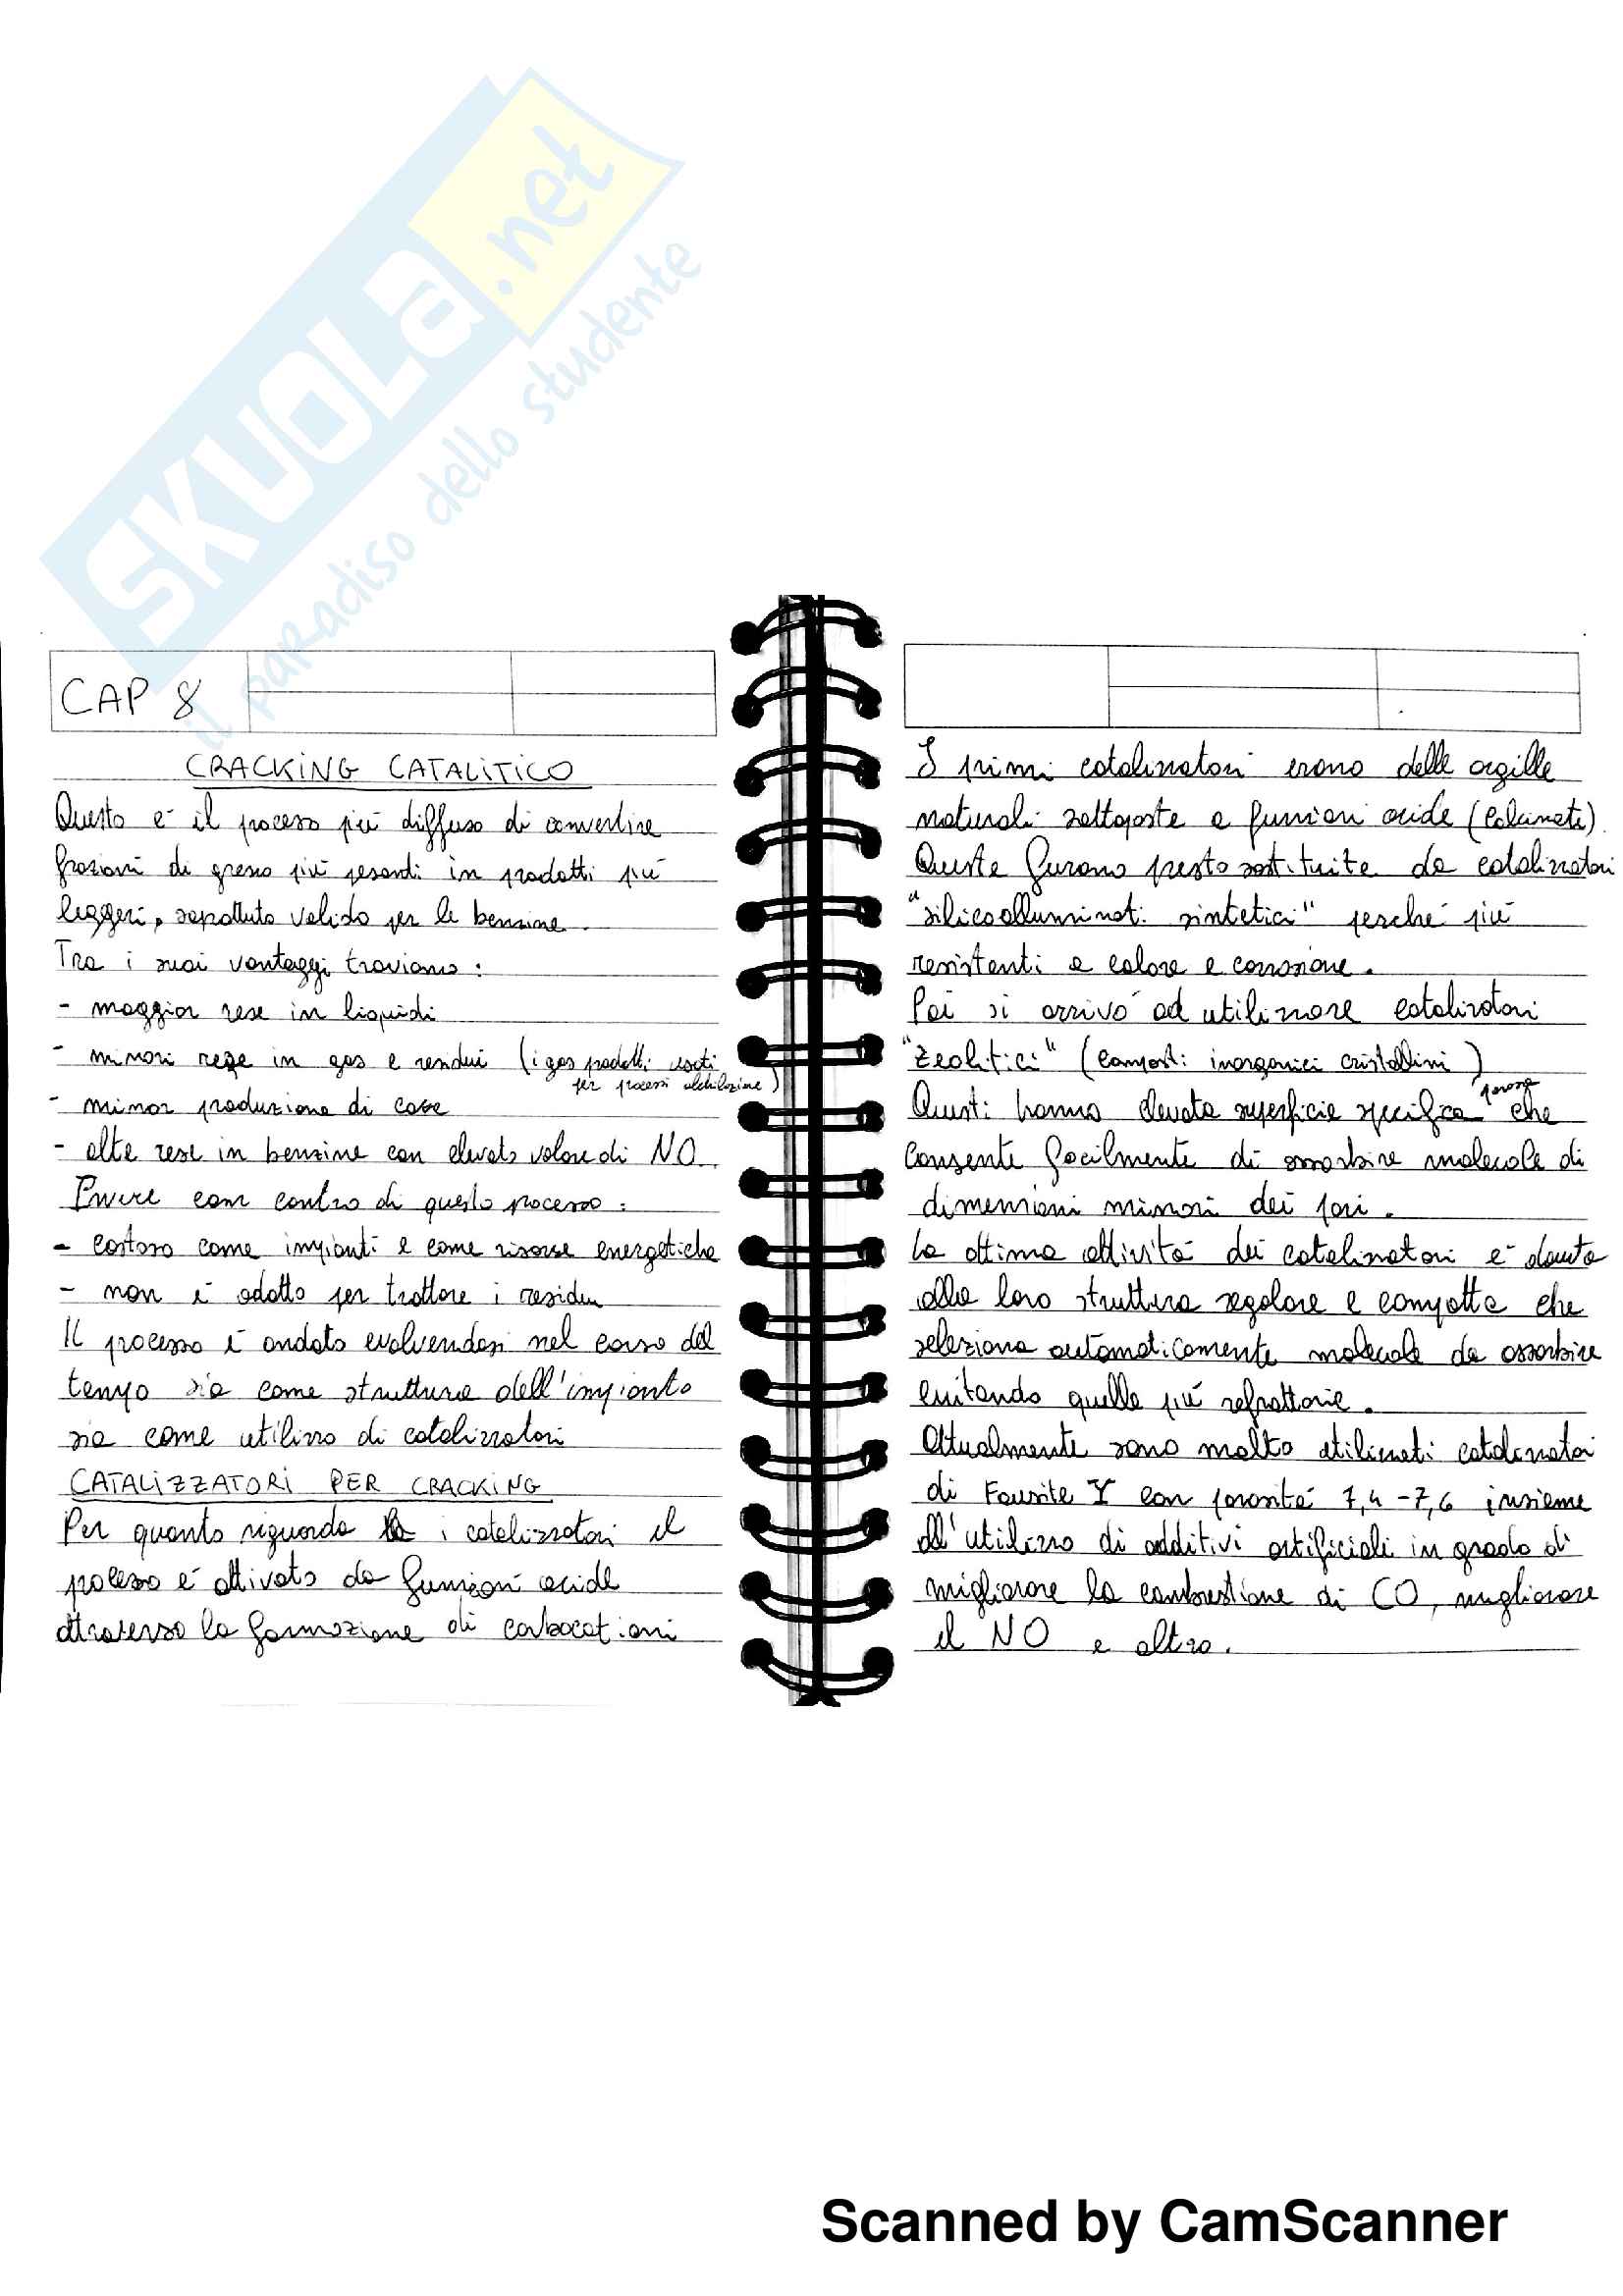 SKUOLA.net
il paradiso dello studente
CAP 8
CRACKING CATALITICO
Questo è il processo più diffuso di convertire
frazioni di grezzo più pesanti in prodotti più
leggeri, soprattutto valido per le benzine.
Tra i suoi vantaggi troviamo:
- maggior rese in liquidi
- minori rese in gas e residui (i gas prodotti usati
per processi alchilazione)
- minor produzione di coke
- alte rese in benzine con elevato valore di NO.
Invece come contro di questo processo:
- costoso come impianti e come risorse energetiche
- non è adatto per trattare i residui
Il processo è andato evolvendosi nel corso del
tempo sia come struttura dell'impianto
sia come utilizzo di catalizzatori
CATALIZZATORI PER CRACKING
Per quanto riguarda i catalizzatori il
processo è attivato da funzioni acide
attraverso la formazione di carbocationi
I primi catalizzatori erano delle argille
naturali sottoposte a funzioni acide (calcinate).
Queste furono presto sostituite da catalizzatori
"silicoalluminati sintetici" perché più
resistenti a calore e corrosione.
Poi si arrivò ad utilizzare catalizzatori
"zeolitici" (composti inorganici cristallini)
Questi hanno elevata superficie specifica porosa che
consente facilmente di assorbire molecole di
dimensioni minori dei fori.
La ottima attività dei catalizzatori è dovuta
alla loro struttura regolare e compatta che
seleziona automaticamente molecole da assorbire
evitando quelle più refrattarie.
Attualmente sono molto utilizzati catalizzatori
di Fausite Y con porosità 7,4-7,6 insieme
all'utilizzo di additivi artificiali in grado di
migliorare la combustione di CO, migliorare
il NO e altro.
Scanned by CamScanner